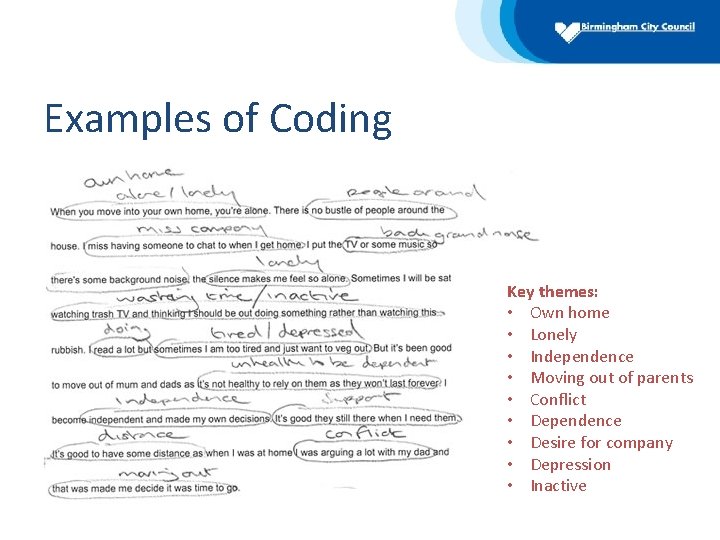 Birmingham City Council
Examples of Coding
own home
alone / lonely
people around
When you move into your own home, you're alone. There is no bustle of people around the
miss company
background noise
house. I miss having someone to chat to when I get home. I put the TV or some music so
lonely
there's some background noise, the silence makes me feel so alone. Sometimes I will be sat
wasting time/inactive
watching trash TV and thinking I should be out doing something rather than watching this
doing
tired / depressed
rubbish. I read a lot but sometimes I am too tired and just want to veg out. But it's been good
unhealthy to be dependent
to move out of mum and dads as it's not healthy to rely on them as they won't last forever. I
Independence
Support
become independent and made my own decisions. It's good they still there when I need them.
distance
conflict
It's good to have some distance as when I was at home I was arguing a lot with my dad and
moving out
that was made me decide it was time to go.
Key themes:
• Own home
• Lonely
• Independence
• Moving out of parents
• Conflict
• Dependence
• Desire for company
• Depression
• Inactive